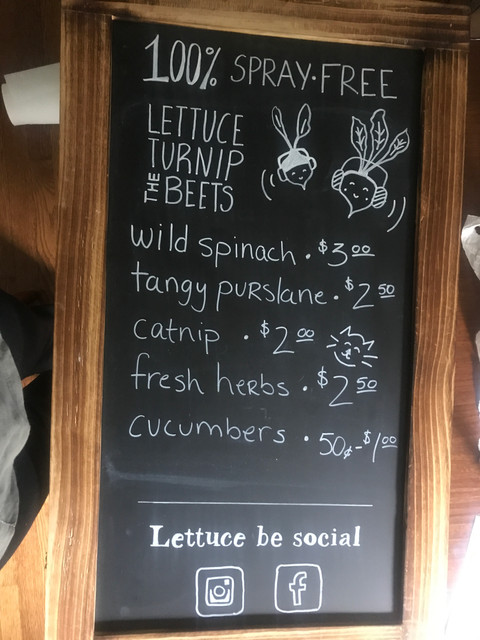 100% SPRAY·FREE
LETTUCE
TURNIP
THE BEETS
wild spinach · $3.00
tangy purslane · $2.50
catnip · $2.00
fresh herbs · $2.50
cucumbers · 50¢-$1.00
Lettuce be social